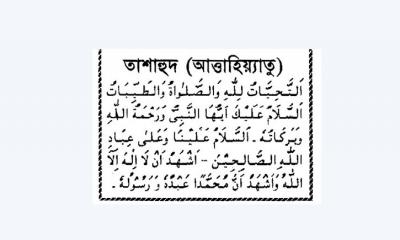 তাশাহুদ (আত্তাহিয়্যাতু)
اَلتَّحِيَّاتُ لِلّٰهِ وَالصَّلَوَاةُ وَالطَّيِّبَاتُ
اَلسَّلَامُ عَلَيْكَ اَيُّهَا النَّبِىُّ وَرَحْمَةُ اللّٰهِ
وَبَرَكَاتُهٗ ـ اَلسَّلَامُ عَلَيْنَا وَعَلٰى عِبَادِ
اللّٰهِ الصَّالِحِيْنَ – اَشْهَدُ اَنْ لَا اِلٰهَ اِلَّا
اللّٰهُ وَاَشْهَدُ اَنَّ مُحَمَّدًا عَبْدُهٗ وَرَسُوْلُهٗ ـ